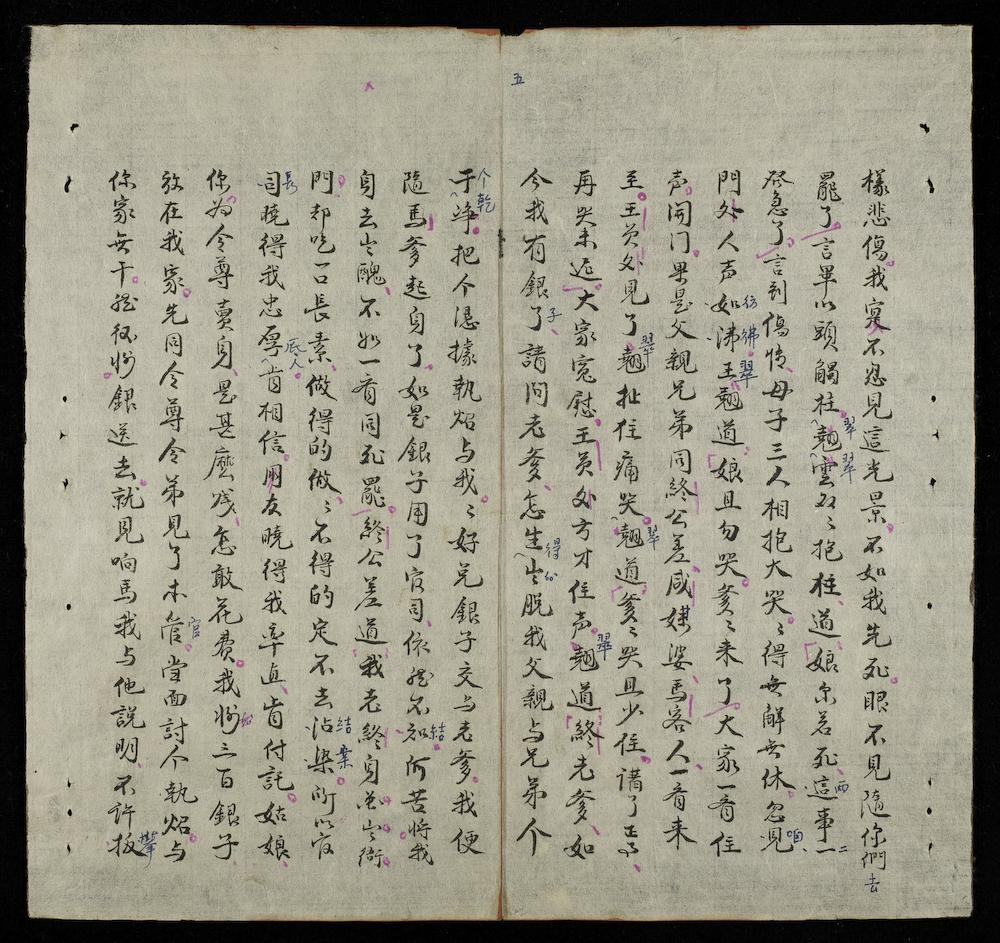 五
樣悲傷我寔不忍見這光景不如我先死眼不見隨你們去
罷了言畢以頭觸柱翹雲双々抱柱道娘尔若死這事一
發急了言到傷情母子三人相抱大哭々得無解無休忽見
門外人声如沸王翹道娘且勿哭爹々来了大家一看住
声開门果是父親兄弟同終公差咸媒婆馬客人一看来
至王員外見了翹扯住痛哭翹道爹々哭且少住請了
再哭未迟大家寬慰王員外方才住声翹道終老爹如
今我有銀了請问老爹怎生出脱我父親与兄弟个
干净把个憑據執炤与我々好兑銀子交与老爹我便
隨馬爹起身了如是銀子用了官司依然不知何苦将我
身去出醜不如一看同死罷終公差道我老終身在衙
門却吃一口長素做得的做々不得的定不去沾染所以官
司曉得我忠厚肯相信用友曉得我率直肯付託姑娘
你为令尊賣身是甚麽残怎敢花費我将三百銀子
放在我家先同令尊令弟見了本官当面討个執炤与
你家無干然後将銀送去就見响馬我与他説明不許扳